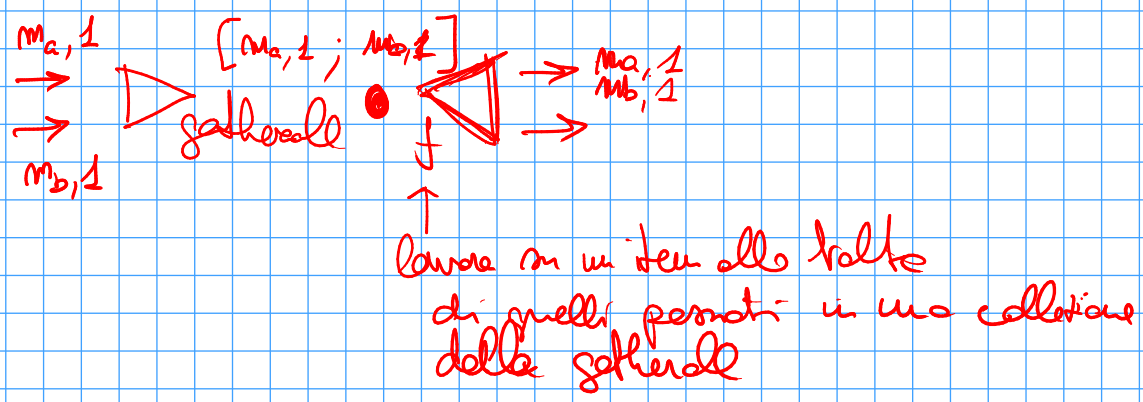 ma, 1
[ma, 1 ; mb, 1]
ma, 1
mb, 1
gatherall
mb, 1
f
lavora su un item alla volta
di quelli passati in una collezione
della gatherall